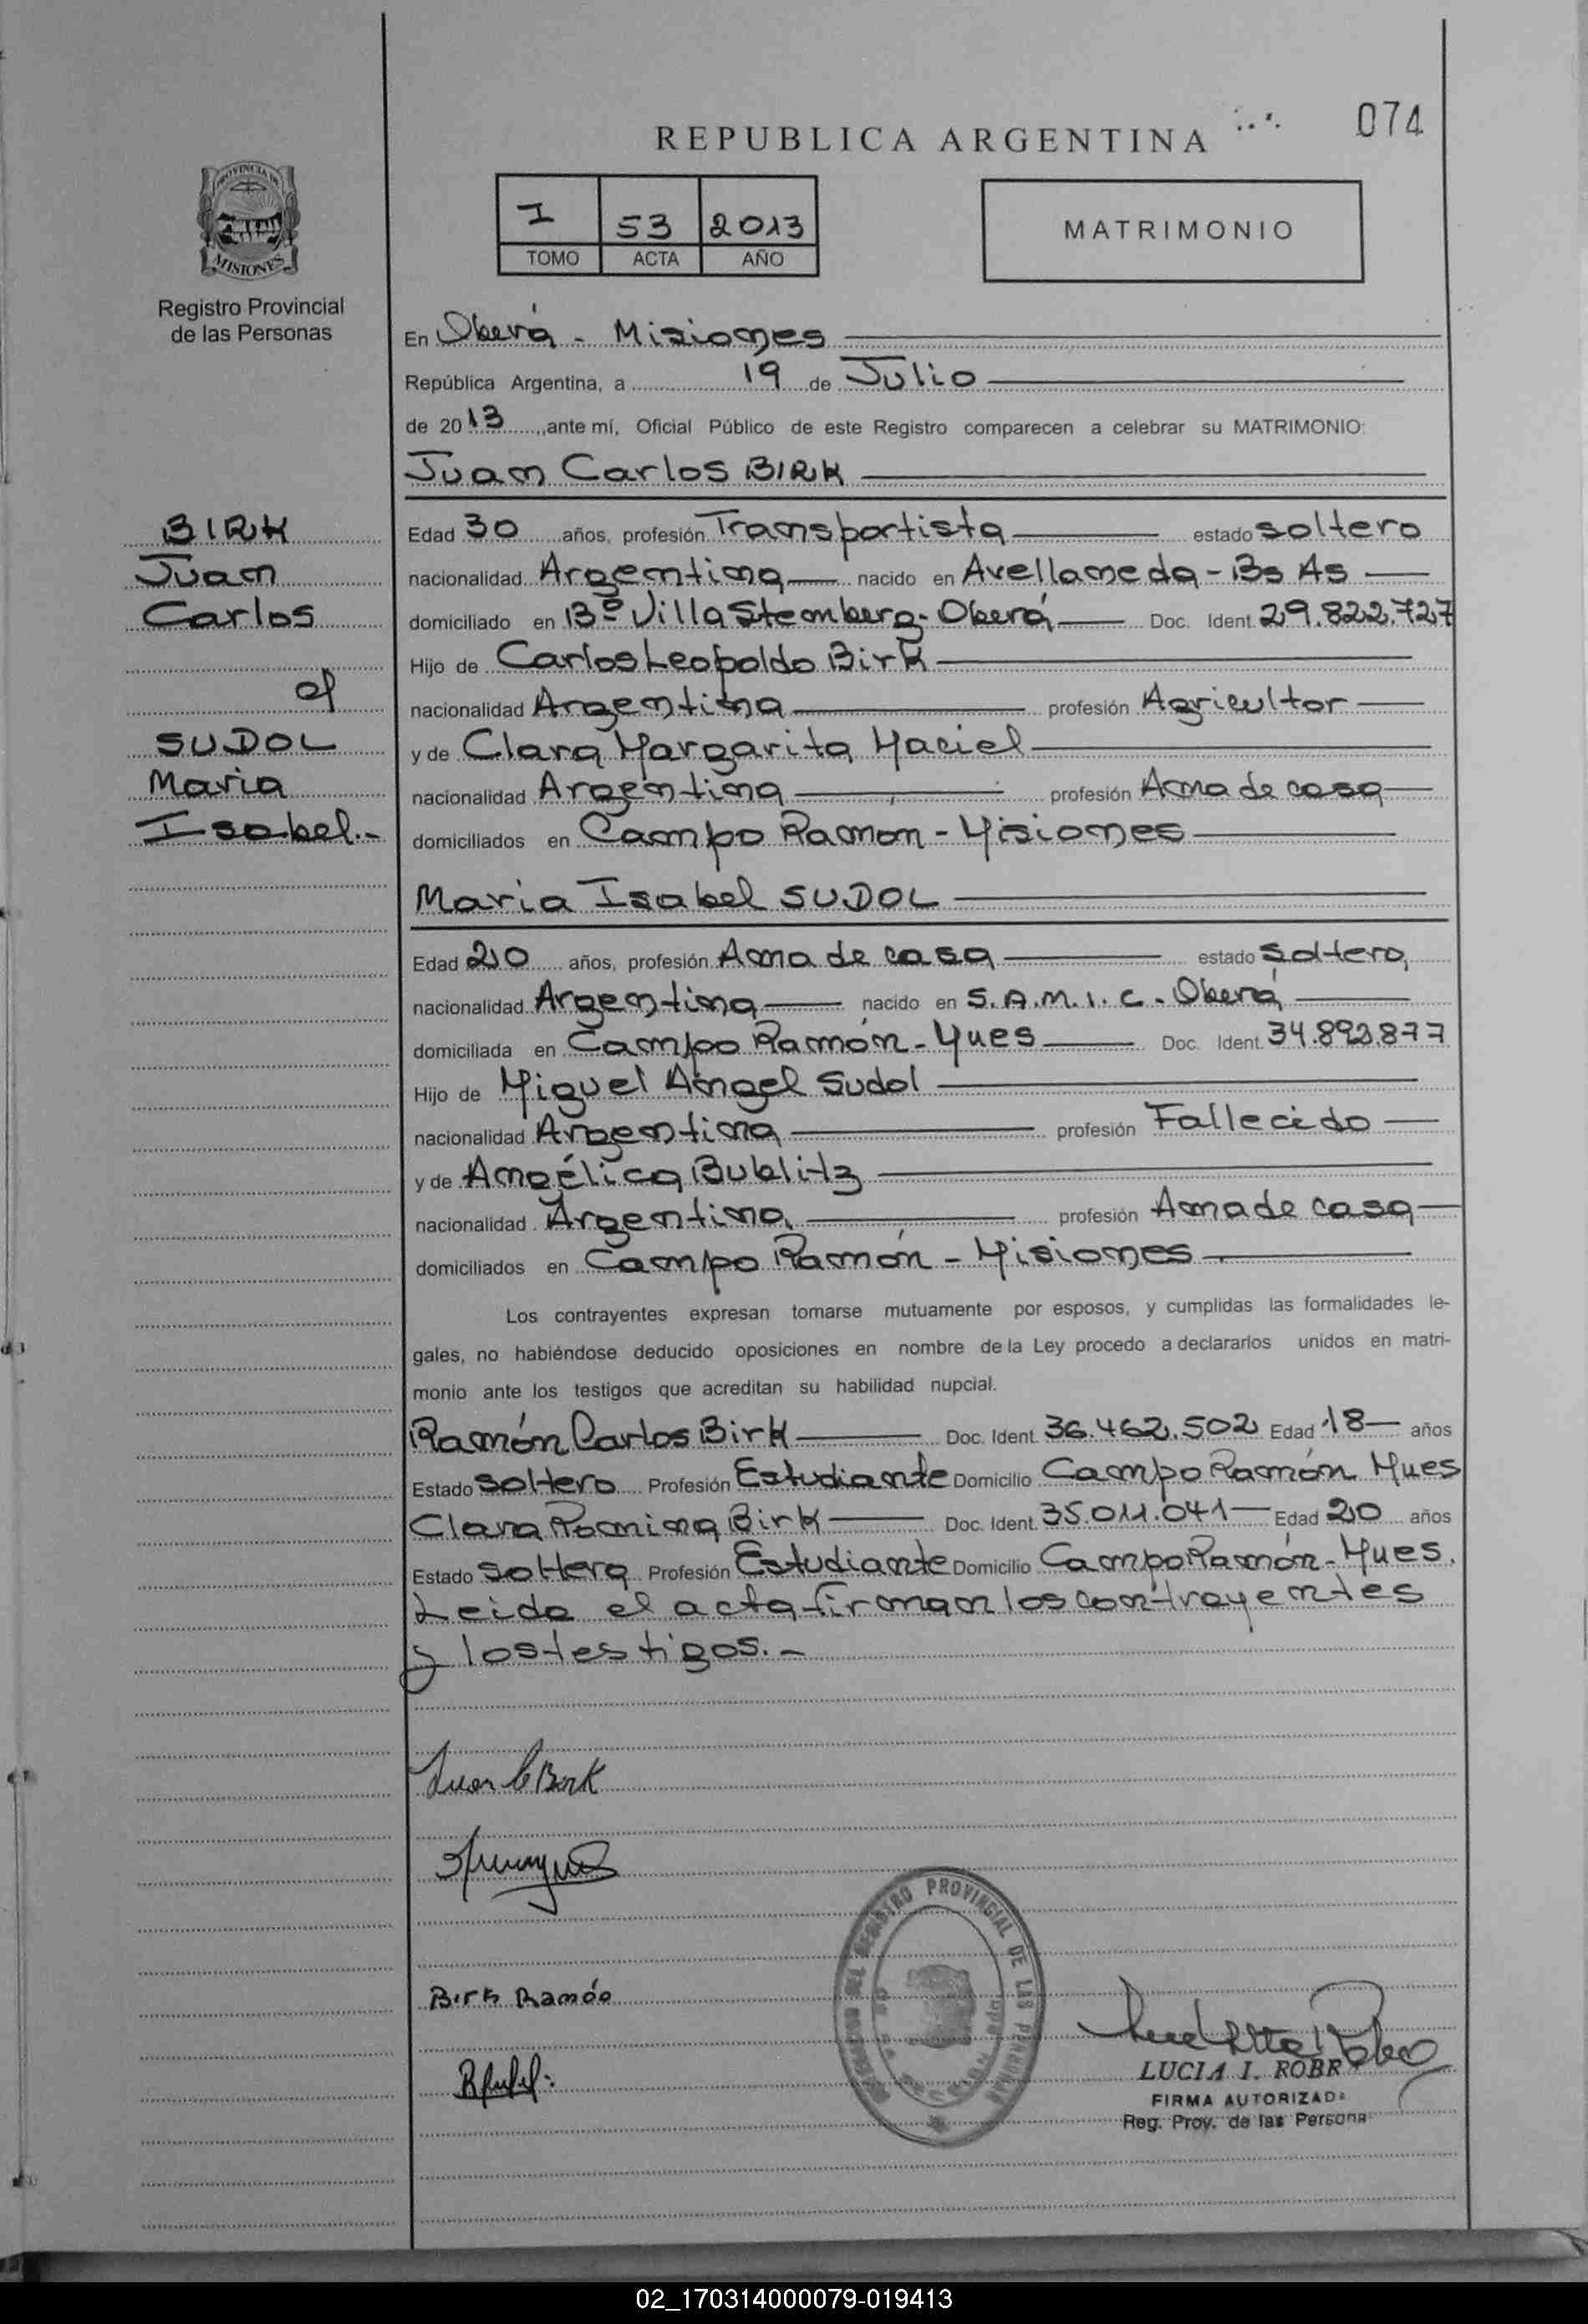 074
REPUBLICA ARGENTINA
PROVINCIA DE
MISIONES
Registro Provincial
de las Personas
I 53 2013
TOMO ACTA AÑO
MATRIMONIO
En Oberá - Misiones
República Argentina, a 19 de Julio
de 2013, ante mí, Oficial Público de este Registro comparecen a celebrar su MATRIMONIO:
Juan Carlos BIRK
BIRK
Juan
Carlos
SUDOL
Maria
Isabel.-
Edad 30 años, profesión Transportista estado soltero
nacionalidad Argentina nacido en Avellaneda - Bs As
domiciliado en 13º Villa Stemberg - Oberá Doc. Ident. 29.822.727
Hijo de Carlos Leopoldo Birk
nacionalidad Argentina profesión Agricultor
y de Clara Margarita Maciel
nacionalidad Argentina profesión Ama de casa
domiciliados en Campo Ramon - Misiones
Maria Isabel SUDOL
Edad 20 años, profesión Ama de casa estado Soltera
nacionalidad Argentina nacido en S.A.M.I.C - Oberá
domiciliada en Campo Ramón - Mnes Doc. Ident. 34.893.877
Hijo de Miguel Angel Sudol
nacionalidad Argentina profesión Fallecido
y de Angélica Bublitz
nacionalidad Argentina profesión Ama de casa
domiciliados en Campo Ramón - Misiones
Los contrayentes expresan tomarse mutuamente por esposos, y cumplidas las formalidades le-
gales, no habiéndose deducido oposiciones en nombre de la Ley procedo a declararlos unidos en matri-
monio ante los testigos que acreditan su habilidad nupcial.
Ramón Carlos Birk Doc. Ident. 36.462.502 Edad 18 años
Estado Soltero Profesión Estudiante Domicilio Campo Ramón Mnes
Clara Romina Birk Doc. Ident. 35.011.041 Edad 20 años
Estado Soltera Profesión Estudiante Domicilio Campo Ramón - Mnes.
Leida el acta firman los contrayentes
y los testigos.-
Juan C Birk
Birk Ramón
REGISTRO PROVINCIAL DE LAS PERSONAS
LUCIA I. ROBR
FIRMA AUTORIZADA
Reg. Prov. de las Persona
02_170314000079-019413